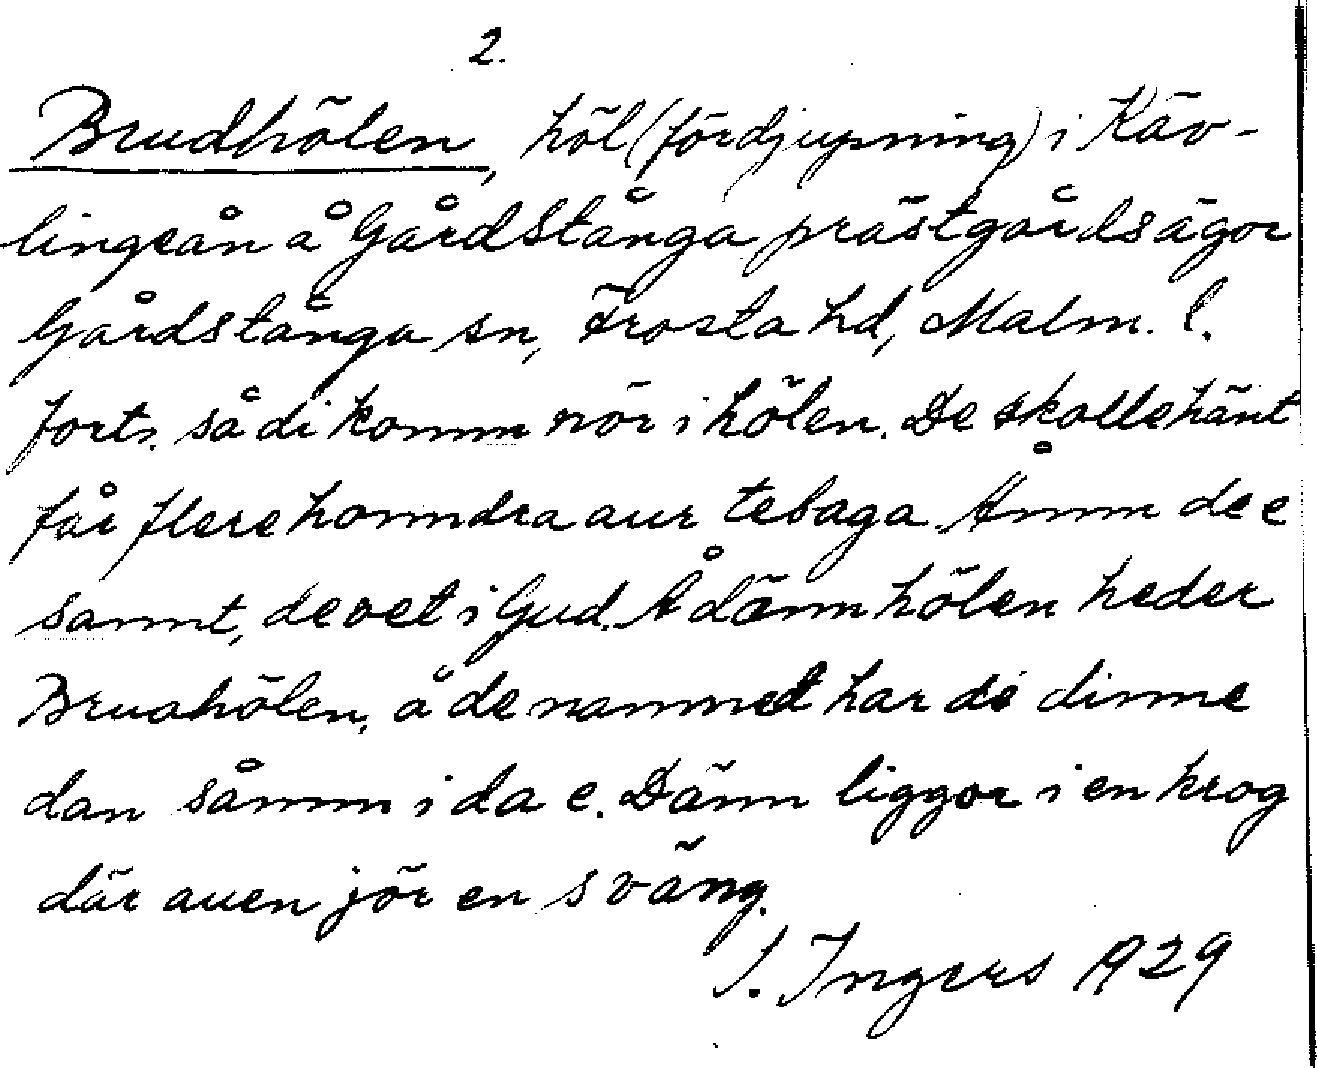 2.
Brudhölen, höl (fördjupning) i Käv-
lingeån å Gårdstånga prästgårdsägor
Gårdstånga sn, Frosta hd, Malm. l.
forts. så di komm nör i hölen. De skolle hänt
får flere honndra aur tebaga. Åmm de e
sannt, de vet i Gud. Å dänn hölen heder
Bruahölen, å de namned har di dinne
dan såmm i da e. Dänn liggor i en krog
där auen jör en sväng.
I. Ingers 1929